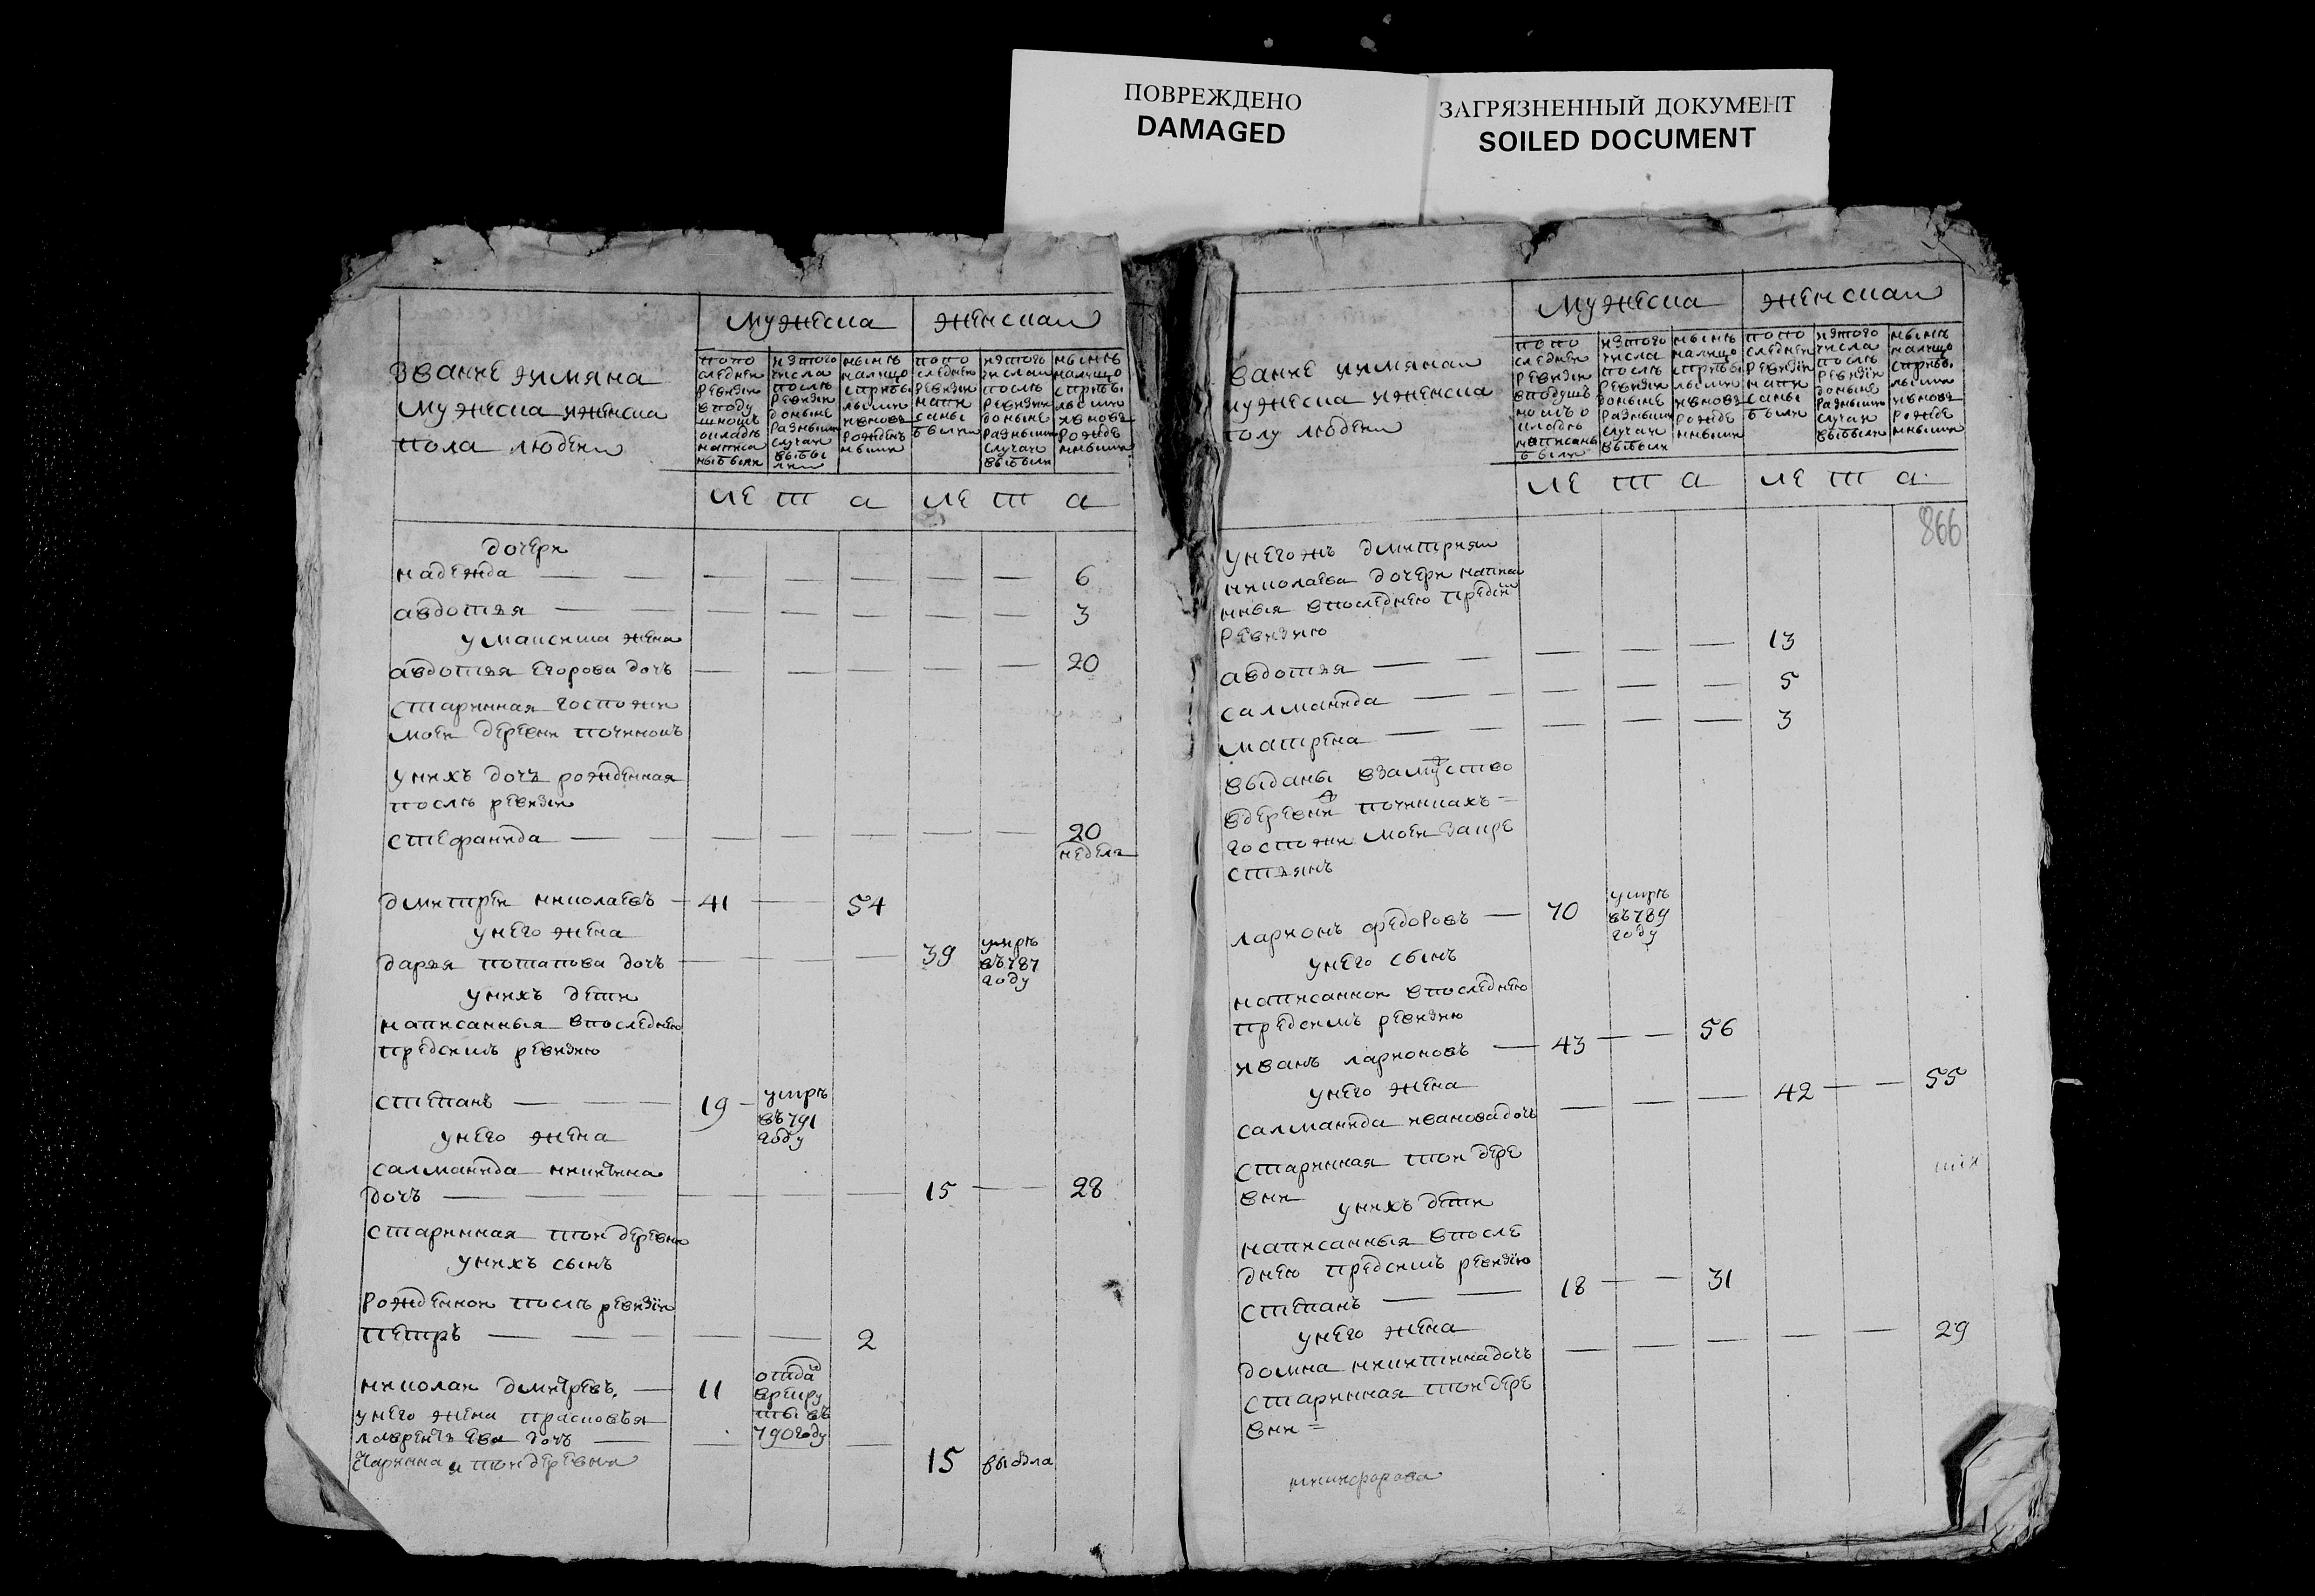 ПОВРЕЖДЕНО
DAMAGED
ЗАГРЯЗНЕННЫЙ ДОКУМЕНТ
SOILED DOCUMENT
звание иимяна
мужеска иженска
пола людеи
мужеска
женскаи
попо
следнеи
ревизiи
споду
шномъ
окладѣ
написа
ныбыли
изтого
числа
послѣ
ревизiи
доныне
разными
случаи
выбы
ли
нынѣ
налицо
спрiбы
лыми
ивновь
рожден
ными
попо
следнеи
ревизiи
напи
саны
были
изтого
числа
послѣ
ревизiи
доныне
разными
случаи
выбыли
нынѣ
налицо
спрiбы
лыми
ивновь
рожде
нными
ле т а
ле т а
дочери
надежда 6
авдотья 3
умаксима жена
авдотья егорова дочь 20
старинная госпожи
моеи деревни починокъ
унихъ дочь рожденная
послѣ ревизiи
стефанида 20
неделя
дмитреи николаевъ 41 54
унего жена
дарья потапова дочь 39 умрѣ
въ787
году
унихъ дети
написанныя впоследнею
предсимъ ревизию
степанъ 19 умрѣ
въ791
году
унего жена
саламанида никитина
дочь 15 28
старинная тои деревни
унихъ сынъ
рожденнои послѣ ревизiи
петръ 2
николаи дмитревъ 11 отда
врекру
ты въ
790году
унего жена прасковья
лаврентьева дочь
старинная тои деревни 15 выбыла
звание иимянаи
мужеска иженска
полу людеи
мужеска
женскаи
попо
следнеи
ревизiи
вподушъ
номъ о
кладѣ
написаны
были
изтого
числа
послѣ
ревизiи
доныне
разными
случаи
выбыли
нынѣ
налицо
спрiбы
лыми
ивновь
рожде
нными
попо
следнеи
ревизiи
напи
саны
были
изтого
числа
послѣ
ревизiи
доныне
разными
случаи
выбыли
нынѣ
налицо
спрiбы
лыми
ивновь
рожде
нными
ле т а
ле т а
866
унегожъ дмитрия
николаева дочери написа
нныя впоследнею предсим
ревизию
авдотья 13
саламанида 5
матрена 3
выданы взамуство
вдеревни починкахъ
госпожи моеи закре
стьянъ
ларионъ федоровъ 70 умрѣ
въ789
году
унего сынъ
написаннои впоследнею
предсимъ ревизию
иванъ ларионовъ 43 56
унего жена
саламанида ивановадочь 42 55
старинная тои дере
вни
унихъ дети
написанныя впосле
днею предсимъ ревизiю
степанъ 18 31
унего жена
домна никитинадочь 29
старинная тои дере
вни